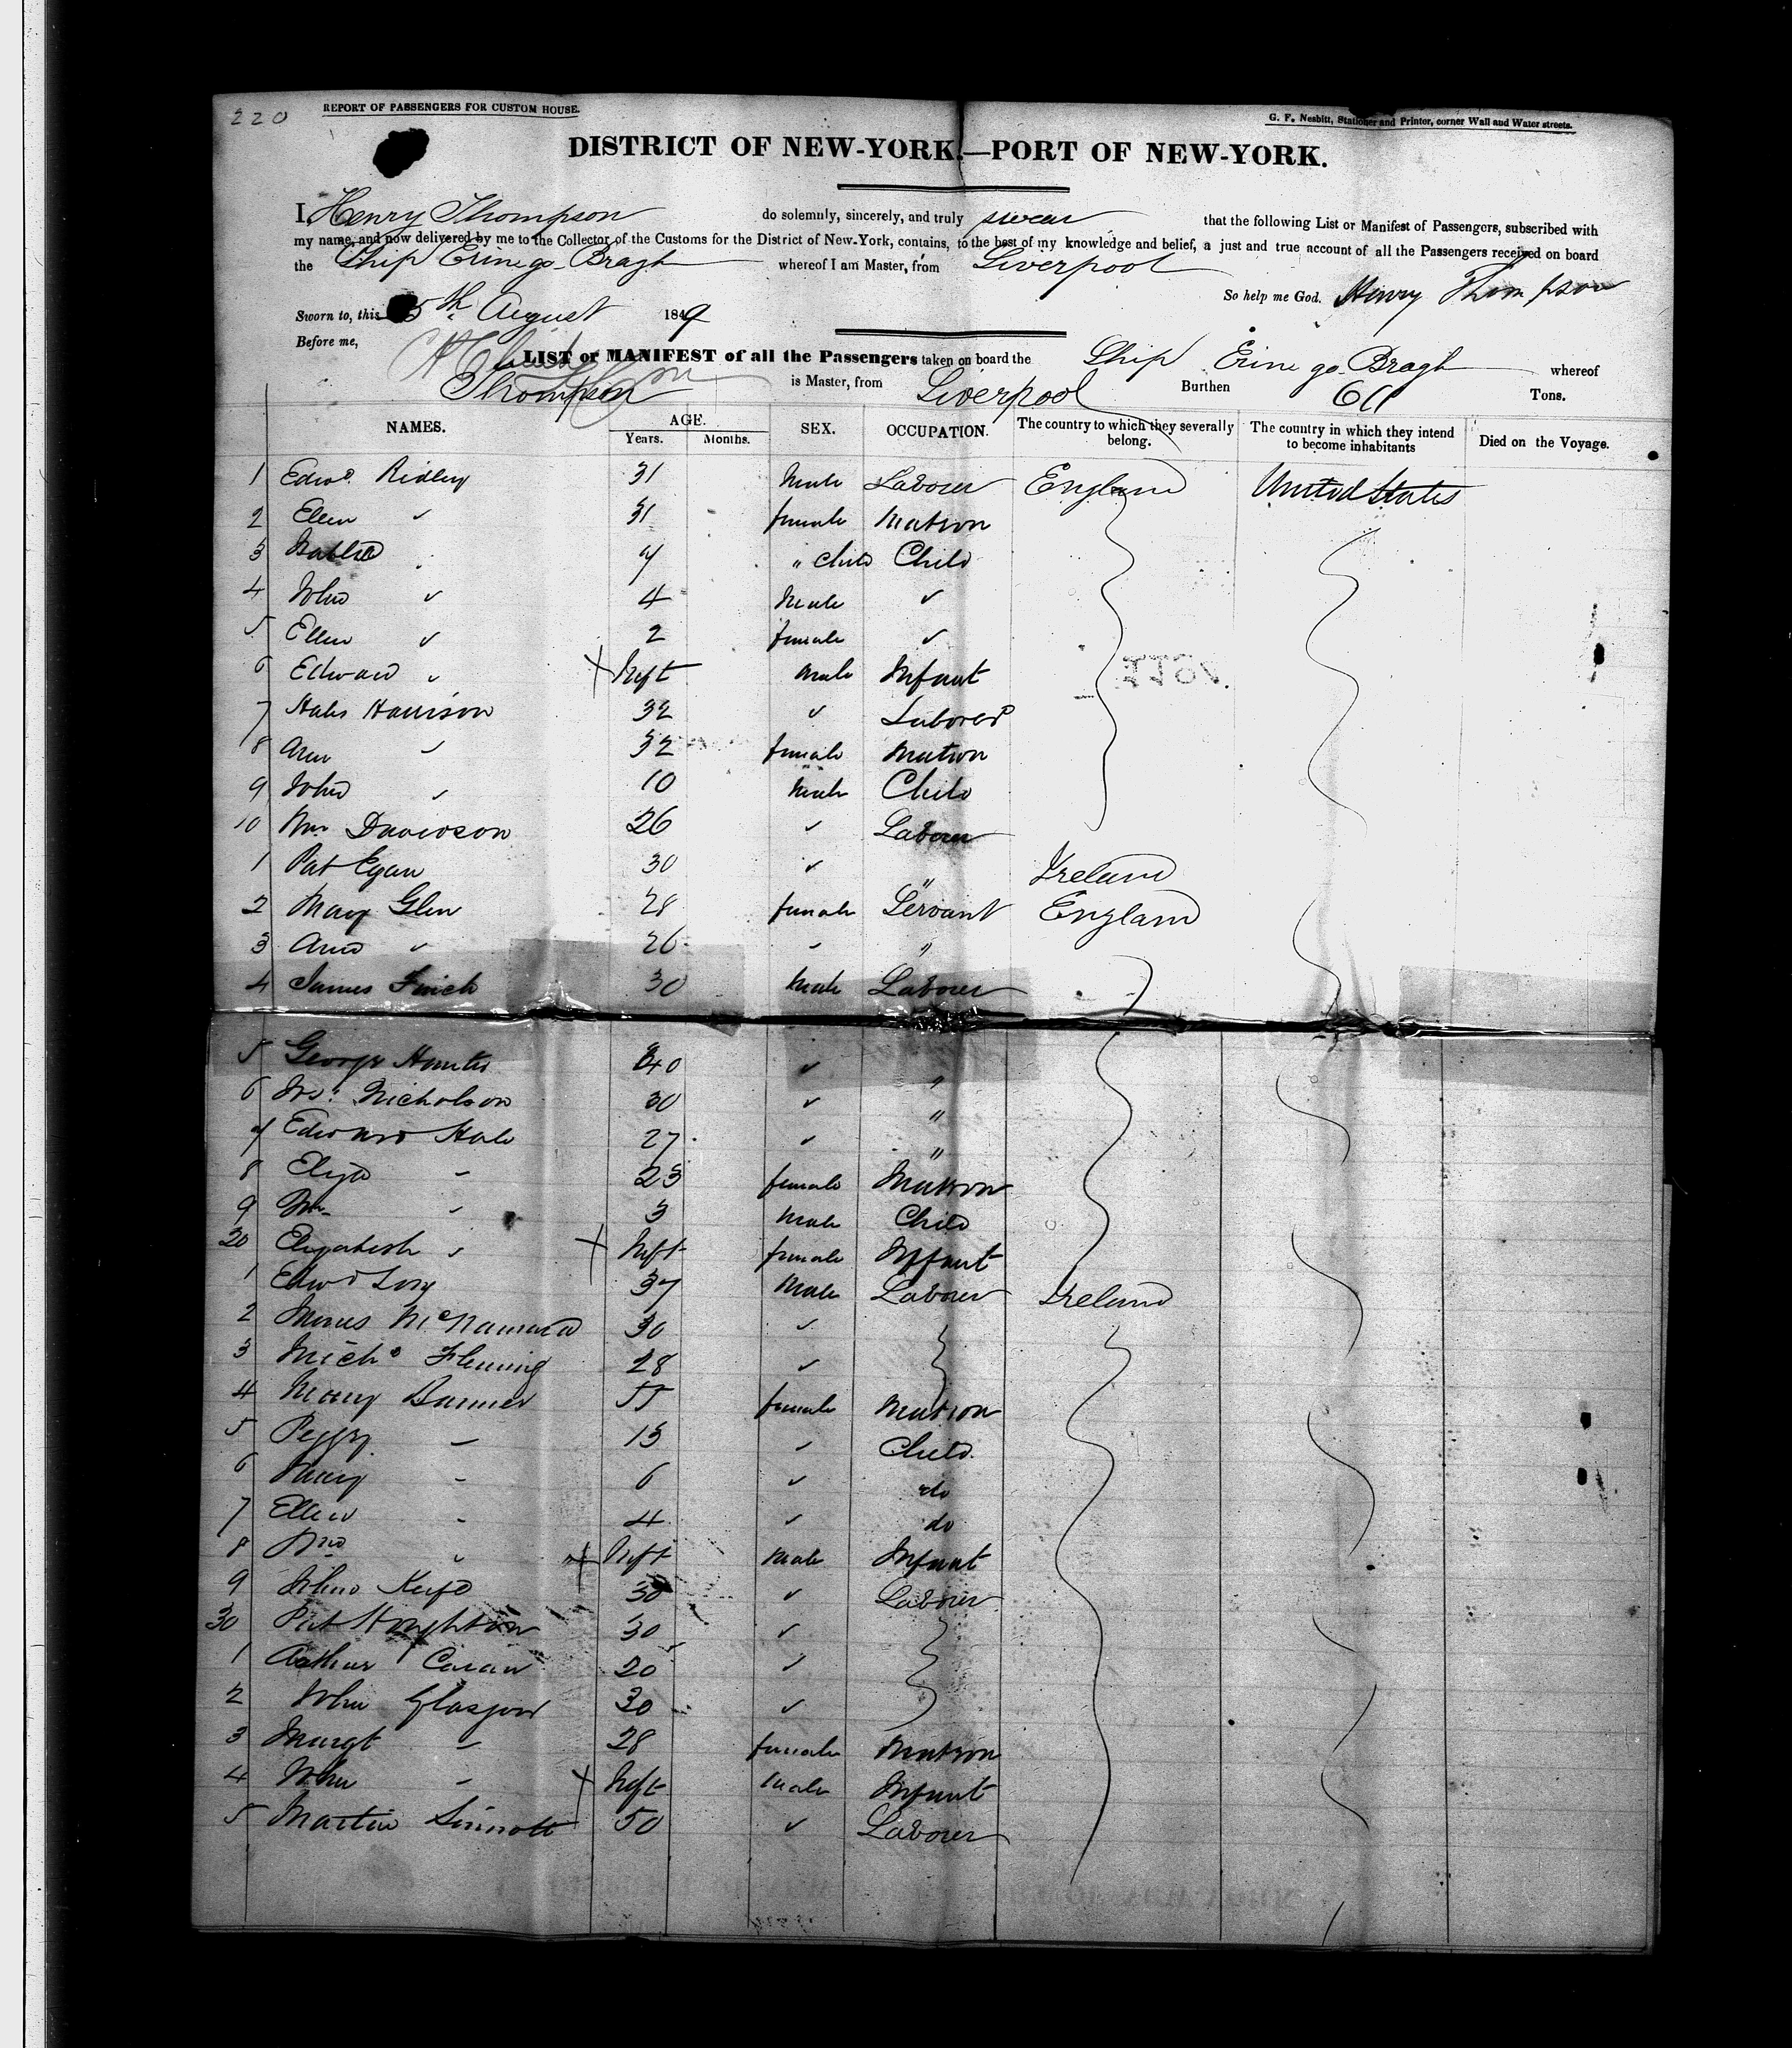 220
REPORT OF PASSENGERS FOR CUSTOM HOUSE.
G. F. Nesbitt, Stationer and Printer, corner Wall and Water streets.
DISTRICT OF NEW-YORK.—PORT OF NEW-YORK.
I, Henry Thompson do solemnly, sincerely, and truly swear that the following List or Manifest of Passengers, subscribed with
my name, and now delivered by me to the Collector of the Customs for the District of New-York, contains, to the best of my knowledge and belief, a just and true account of all the Passengers received on board
the Ship Erin go Bragh whereof I am Master, from Liverpool
So help me God. Henry Thompson
Sworn to, this 5th August 1849
Before me,
LIST or MANIFEST of all the Passengers taken on board the Ship Erin go Bragh whereof
Thompson is Master, from Liverpool Burthen Tons.
NAMES. AGE. Years. Months. SEX. OCCUPATION. The country to which they severally belong. The country in which they intend to become inhabitants Died on the Voyage.
1 Edwd. Ridley 31 Male Labourer England United States
2 Ellen " 31 female Matron
3 7 " child Child
4 John " 4 Male "
5 Ellen " 2 female "
6 Edward " Inft male Infant
7 Harrison 32 " Laborer
8 Ann " 32 female Matron
9 John " 10 Male Child
10 Wm Davidson 26 " Labourer
1 Pat Egan 30 " " Ireland
2 Mary Glen 28 female Servant England
3 Ann " 26 " "
4 James Finch 30 Male Labourer
5 George Hunter 40 " "
6 Nicholson 30 " "
7 Edward Hale 27 " "
8 Eliza " 23 female Matron
9 Wm " 3 Male Child
20 Elizabeth " Inft female Infant
1 Edwd 37 Male Labourer Ireland
2 McNamara 30 "
3 Michl Fleming 28 "
4 Mary 55 female Matron
5 Peggy " 13 " Child
6 Mary " 6 " do
7 Ellen " 4 " do
8 " Inft Male Infant
9 John Keefe 30 " Labourer
30 Pat Houghton 30 "
1 Arthur 20 "
2 John Glasgow 30 "
3 Margt " 28 female Matron
4 John " Inft Male Infant
5 Martin Sinnott 50 " Labourer